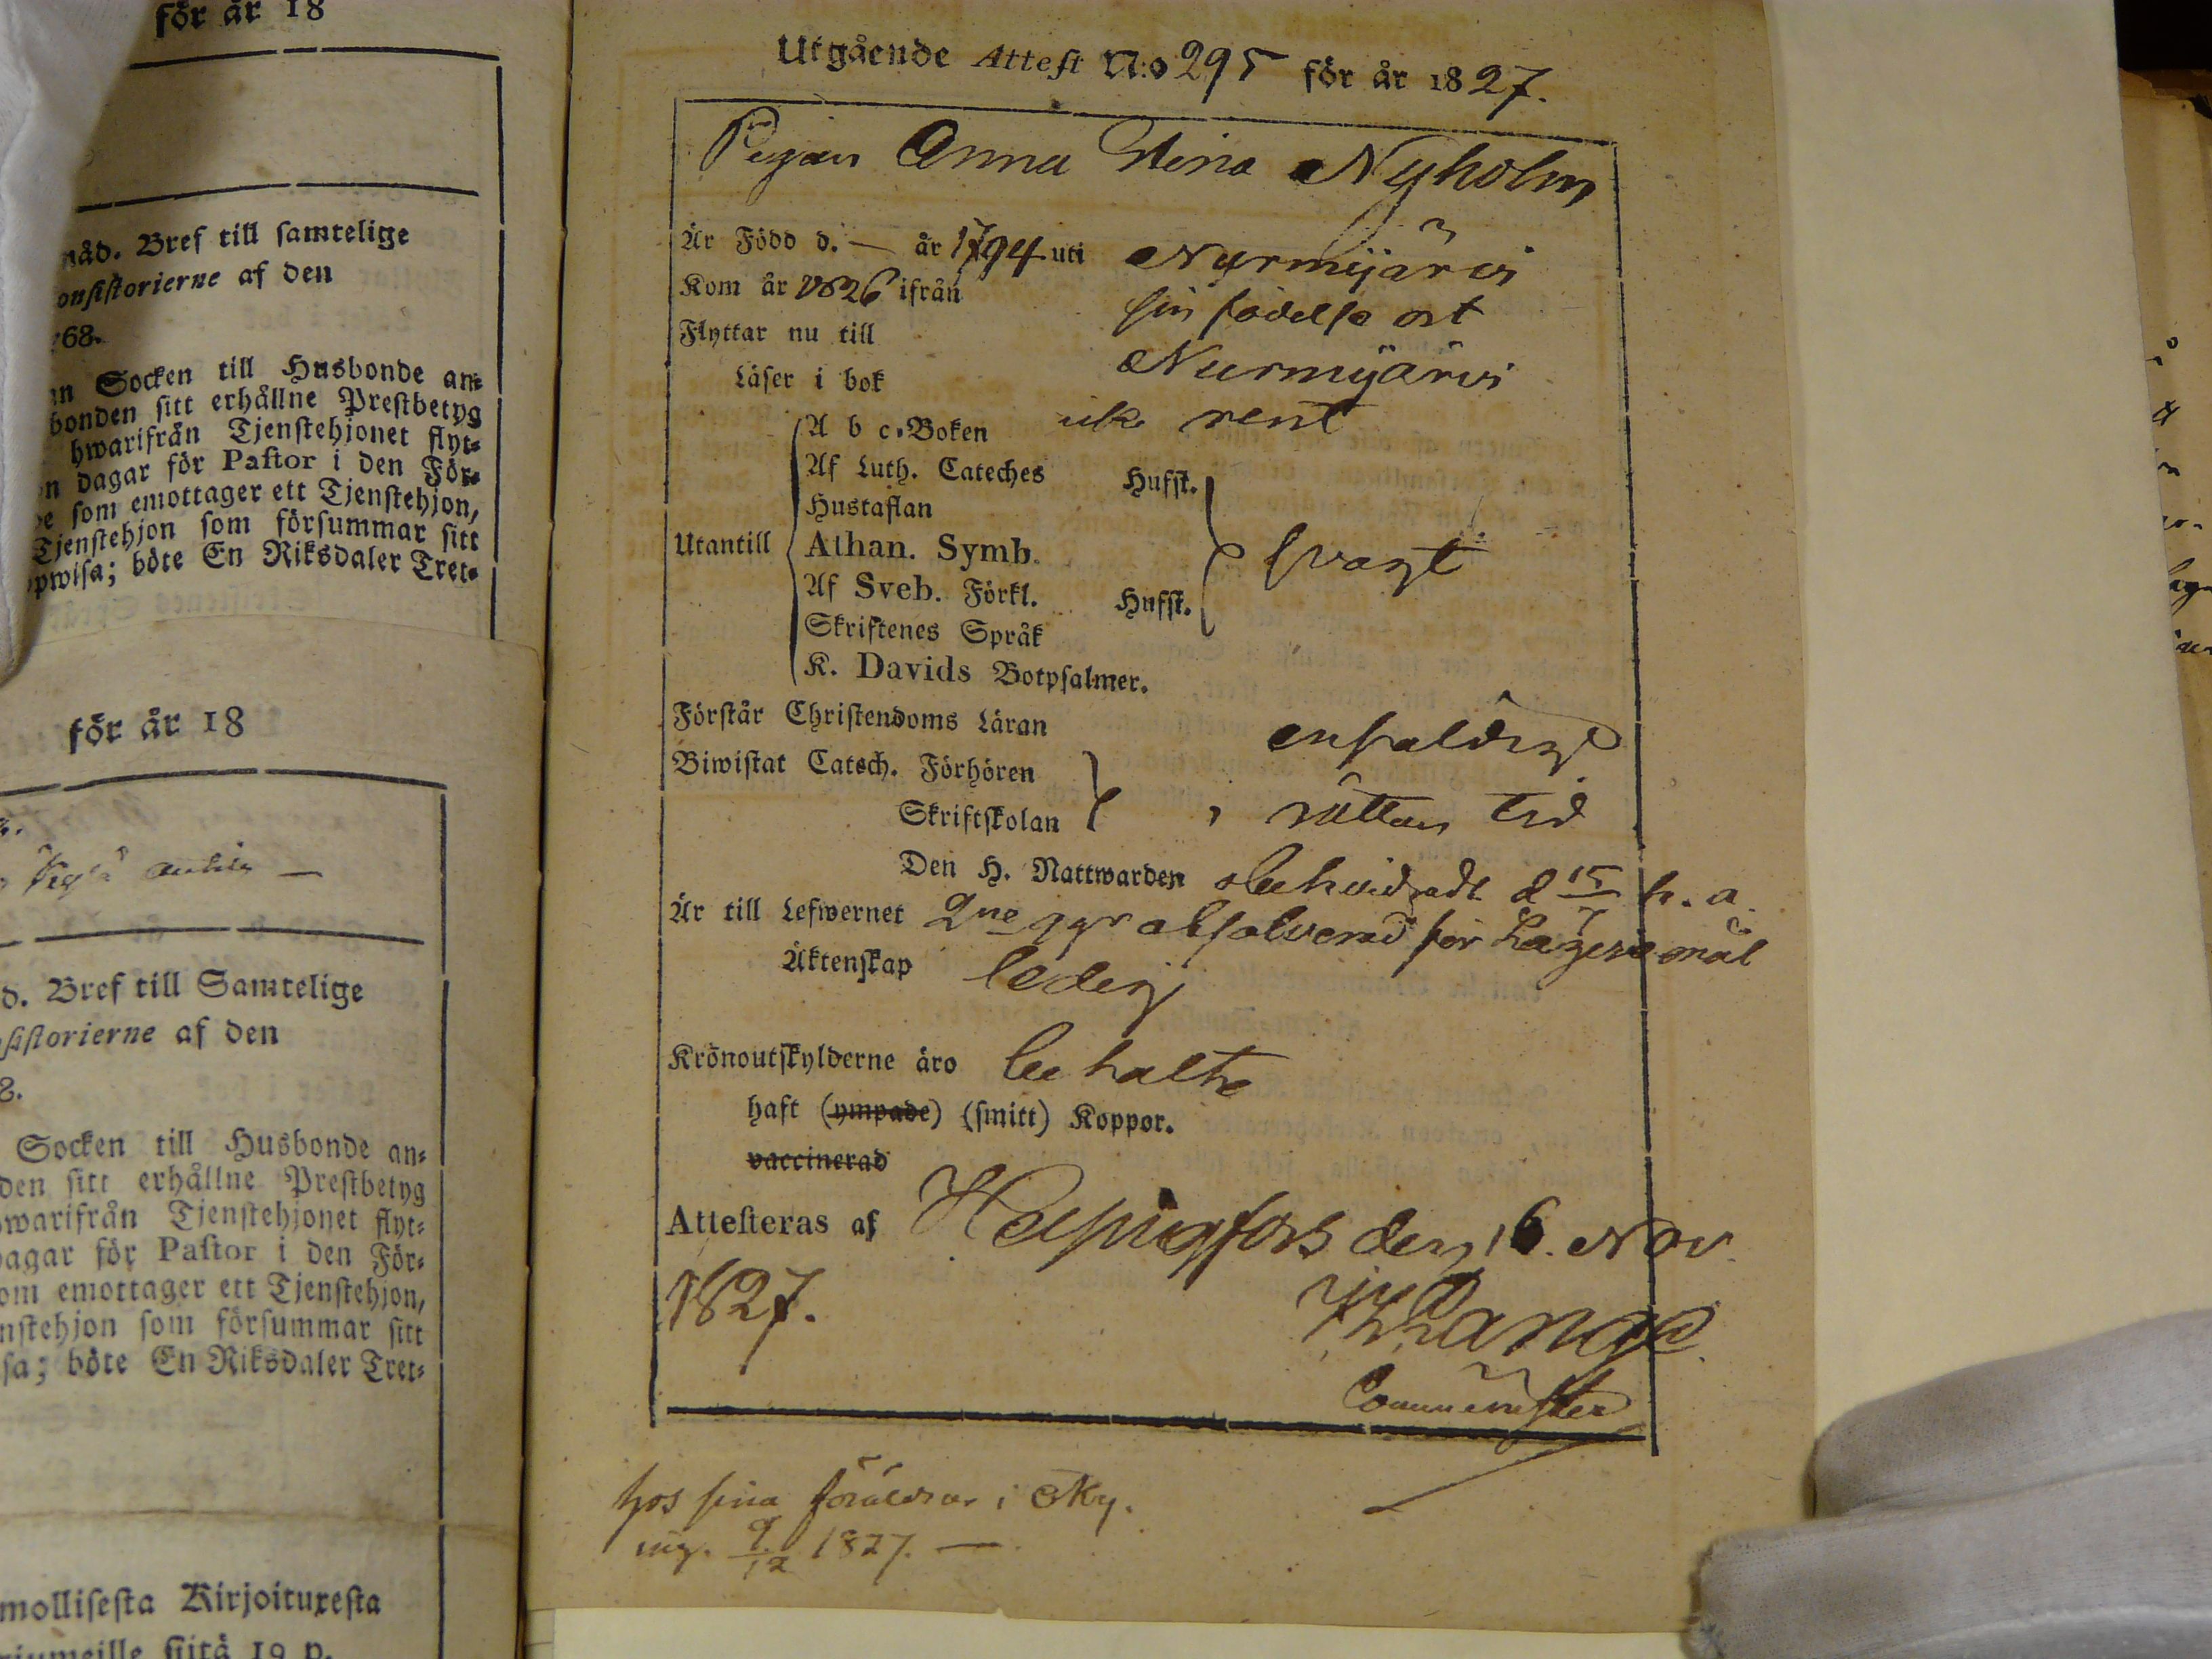 för år 18
nåd. Bref till samtelige
onsistorierne af den
68.
n Socken till Husbonde an=
bonden sitt erhållne Prestbetyg
hwarifrån Tjenstehjonet flyt=
n dagar för Pastor i den För=
e som emottager ett Tjenstehjon,
Tjenstehjon som försummar sitt
pwisa; böte En Riksdaler Tret=
för år 18
d. Bref till Samtelige
sistorierne af den
8.
Socken till Husbonde an=
den sitt erhållne Prestbetyg
warifrån Tjenstehjonet flyt=
agar för Pastor i den För=
om emottager ett Tjenstehjon,
nstehjon som försummar sitt
sa; böte En Riksdaler Tret=
mollisesta Kirjoituxesta
riumeille siitä 19 p.
Utgående Attest N:o 295 för år 1827.
Pigan Anna Stina Nyholm
Är Född d. — år 1794 uti Nurmijärvi
Kom år 1826 ifrån sin födelse ort
Flyttar nu till Nurmijärvi
Läser i bok rent
A b c-Boken
Af Luth. Cateches Hufst.
Hustaflan
Utantill Athan. Symb. svagt
Af Sveb. Förkl. Hufst.
Skriftenes Språk
K. Davids Botpsalmer.
Förstår Christendoms Läran enfaldigt
Biwistat Catech. Förhören
Skriftskolan i rättan tid
Den H. Nattwarden d 15/7 h. a.
Är till Lefwernet 2ne ggr absolverad för Lägersmål
Äktenskap ledig
Krönoutskylderne äro behaltne
haft (ympade) (smitt) Koppor.
vaccinerad
Attesteras af Helsingfors den 16. Nov.
1827. Lange
Comminister
hos sina föräldrar i Kky.
9/12 1827. —